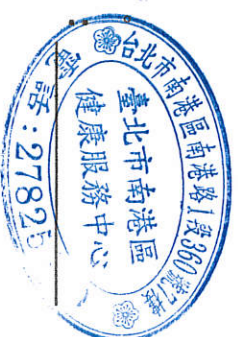 台北市南港區南港路1段360號7樓
臺北市南港區
健康服務中心
電話:27825